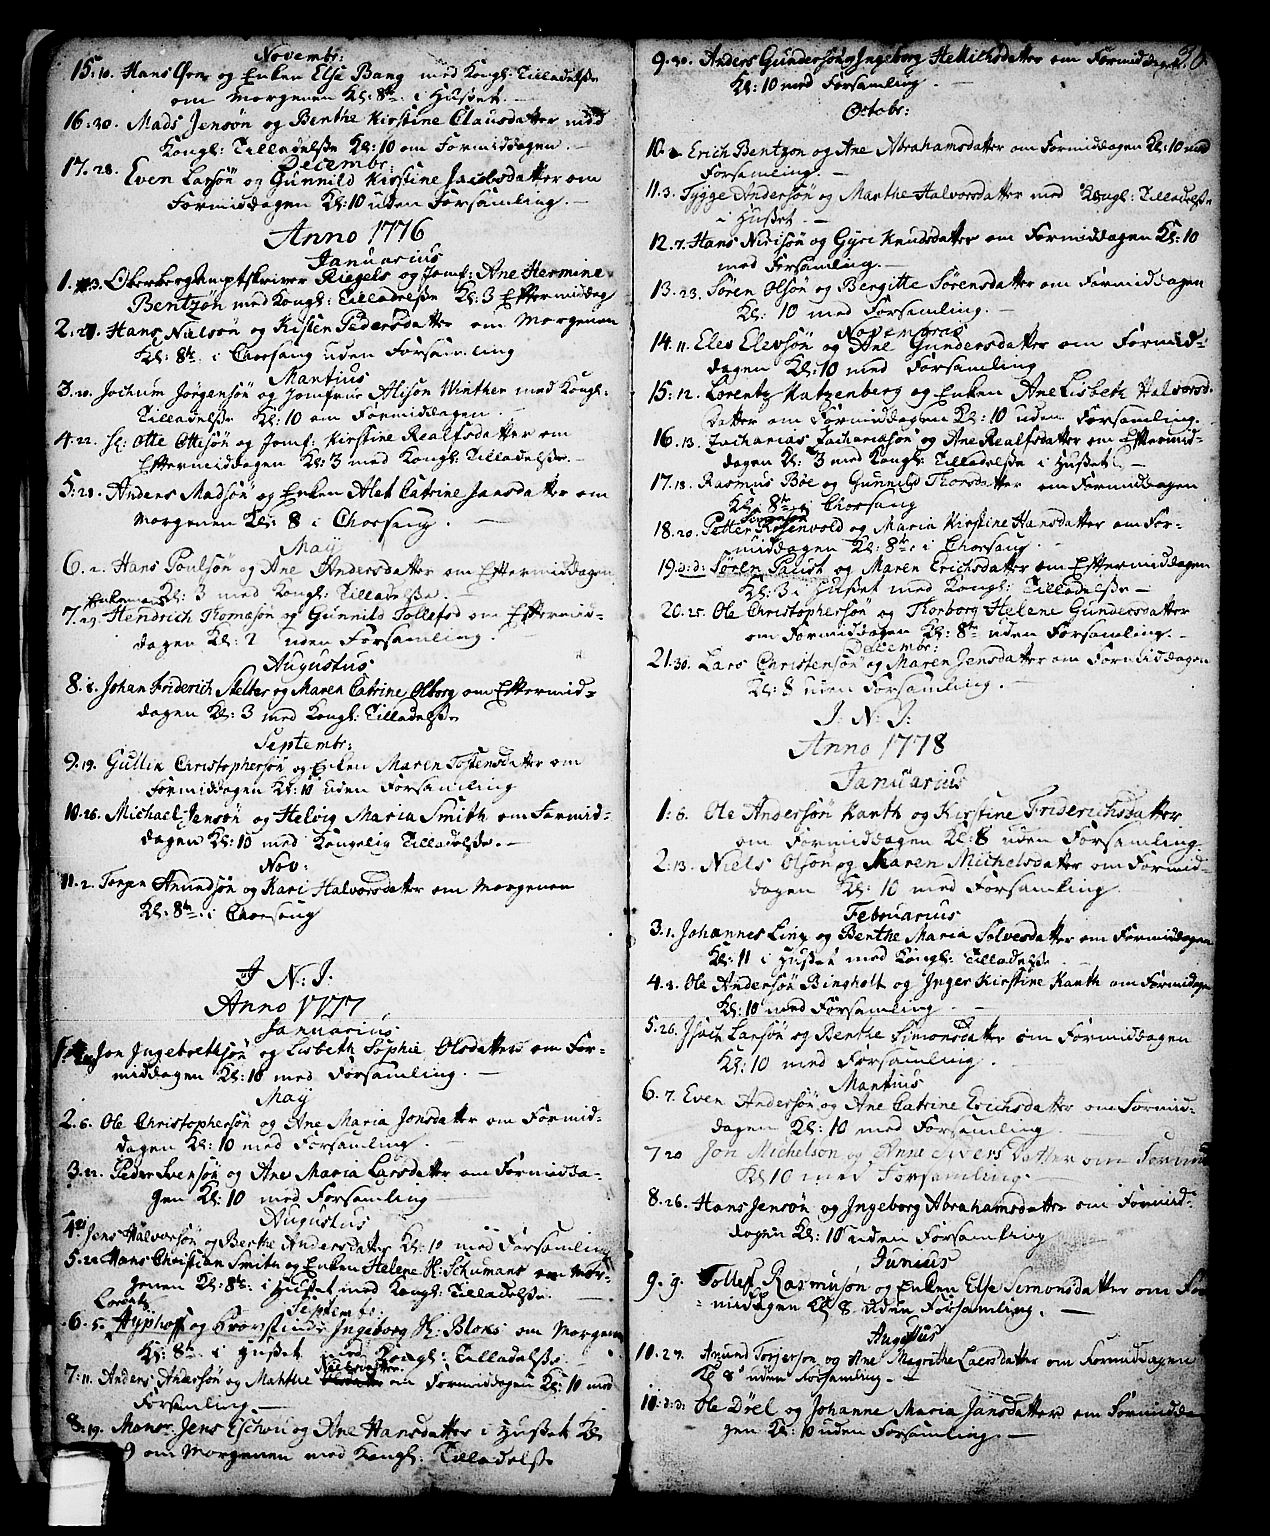 Novembr:
15. 10. Hans Øen og Enken Else Bang med Kongl: Tilladelsse
om Morgenen Kl: 8te i Husset. —
16. 30. Mads Jensøn og Benthe Kirstine Clausdatter med
Kongl: Tilladelsse Kl: 10 om Formiddagen. —
Decembr:
17. 28. Even Larsøn og Gunnild Kirstine Jacobsdatter om
Formiddagen Kl: 10 uden Forsamling. —
Anno 1776
Januarius
1. 3. Oberbergamptskriver Riegels og Jomf: Ane Hermine
Bentzøn med Kongl: Tilladelsse Kl: 3 Eftermiddag
2. Hans Nielsøn og Kisten Pedersdatter om Morgenen
Kl: 8te i Chorsang uden Forsamling
Martius
3. 20. Jochum Jørgensøn og Jomfrue Alison Winther med Kongl:
Tilladelsse Kl: 10 om Formiddagen.
4. 22. Sr. Otte Ottisøn og Jomf: Kirstine Realfsdatter om
Eftermiddagen Kl: 3 med Kongl: Tilladelsse. —
5. 28. Anders Madsøn og Enken Alet Catrine Jansdatter om
Morgenen Kl: 8 i Chorsang. —
May
6. 2. Hans Poulsøn og Ane Andersdatter om Eftermiddagen
Kl: 3 med Kongl: Tilladelsse. —
Enkeman
7. 29. Hendrich Thomasøn og Gunnild Tollefsd om Eftermid-
dagen Kl: 2 uden Forsamling.
Augustus
8. 6. Johan Friderich Stelter og Maren Catrine Olborg om Eftermid-
dagen Kl: 3 med Kongl: Tilladelsse
Septembr:
9. 19. Gullik Christophersøn og Enken Maren Tostensdatter om
Formiddagen Kl: 10 uden Forsamling
10. 26. Michael Jensøn og Helvig Maria Smith om Formid-
dagen Kl: 10 med Kongelig Tilladelsse. —
Nov:
11. 2. Torgen Anundsøn og Kari Halvorsdatter om Morgenen
Kl: 8te i Chorsang
J. N. J:
Anno 1777
Januarius
1. Jon Ingebretsøn og Lisbeth Sophie Olsdatter om For-
middagen Kl: 10 med Forsamling. —
May
2. 6. Ole Christophersøn og Ane Maria Jonsdatter om Formid-
dagen Kl: 10 med Forsamling. —
3. 22. Peder Svensøn og Ane Maria Larsdatter om Formidda-
gen Kl: 10 med Forsamling —
Augustus
4. 21 Jens Halvorsøn og Berthe Andersdatter Kl: 10 med Forsamling
5. 22 Hans Christian Smith og Enken Helene Sl: Schumans om Mor-
genen Kl: 8te i Husset med Kongl: Tilladelsse.
Septemb:
Lorentz
6. 5. Hyphoff og Ingeborg Sl: Bloks om Morgenen
Kl: 8te i Husset med Kongl: Tilladelsse.
Nielsdatter
7. 11. Anders Andersøn og Mahthe om Formiddagen Kl: 10 med
Forsamling —
8. 19. Monsr. Jens Eschou og Ane Hansdatter i Husset Kl:
9 om Morgenen med Kongl: Tilladelsse
9. 30. Anders Gundersøn og Ingeborg Hellichsdatter om Formiddagen
Kl: 10 med Forsamling.
Octobr:
10. 2. Erich Bentzon og Ane Abrahamsdatter om Formiddagen Kl: 10 med
Forsamling. —
11. 3. Tygge Andersøn og Marthe Halvorsdatter med Kongl: Tilladelsse
i Husset. —
12. 7. Hans Nirisøn og Gyri Knudsdatter om Formiddagen Kl: 10
med Forsamling. —
13. 23. Søren Olsøn og Bergitte Sørensdatter om Formiddagen
Kl: 10 med Forsamling. —
Novembris
14. 11. Elev Elevsøn og Ane Gundersdatter om Formid-
dagen Kl: 10 med Forsamling
15. 12. Lorentz Katzenberg og Enken Ane Lisbeth Halvorsd-
datter om Formiddagen Kl: 10 uden Forsamling.
16. 13. Zacharias Zachariasøn og Ane Realfsdatter om Eftermid-
dagen Kl: 3 med Kongl: Tilladelsse i Husset. —
17. 18. Rasmus Boe og Gunnild Thorsdatter om Formiddagen
Kl: 8te i Chorsang
18. 20. Petter Rosenvold og Maria Kirstine Hansdatter om For-
middagen Kl: 8te i Chorsang. —
19. d: d: Søren Paust og Maren Erichsdatter om Eftermiddagen
Kl: 3 i Husset med Kongl: Tilladelsse —
20. 25. Ole Christophersøn og Thorborg Helene Gundersdatter
om Formiddagen Kl: 8te uden Forsamling. —
Decembr:
21. 30. Lars Christensøn og Maren Jensdatter om Formiddagen
Kl: 8 uden Forsamling. —
J. N. J:
Anno 1778
Januarius
1. 6. Ole Andersøn Kanth og Kirstine Friderichsdatter
om Formiddagen Kl: 8 uden Forsamling.
2. 13. Niels Olsøn og Maren Michelsdatter om Formid-
dagen Kl: 10 med Forsamling
Februarius
3. 1. Johannes Linz og Benthe Maria Solvesdatter om Formiddagen
Kl: 11 i Husset med Kongl: Tilladelsse
4. 3. Ole Andersøn Bingholt og Inger Kirstine Kanth om Formiddagen
Kl: 10 med Forsamling —
5. 26. Isach Larsøn og Benthe Simonsdatter om Formiddagen
Kl: 10 med Forsamling.
Martius
6. 7. Even Andersøn og Ane Catrine Erichsdatter om Formid-
dagen Kl: 10 med Forsamling
7 20 Jon Michelson og Anne Siversdatter om Formid
Kl 10 med Forsamling. —
8. 26. Hans Jensøn og Ingeborg Abrahamsdatter om Formid-
dagen Kl: 10 uden Forsamling
Junius
9. 9. Tollef Rasmusøn og Enken Else Simonsdatter om For
middagen Kl 8 uden Forsamling. —
Augustus
10. 27. Amund Torjerson og Ane Magrithe Laersdatter om Formiddagen
Kl 8 uden Forsamling. —
10. d: d: Ole Døel og Johanne Maria Jansdatter om Formidda
gen Kl: 10 uden Forsamling. —